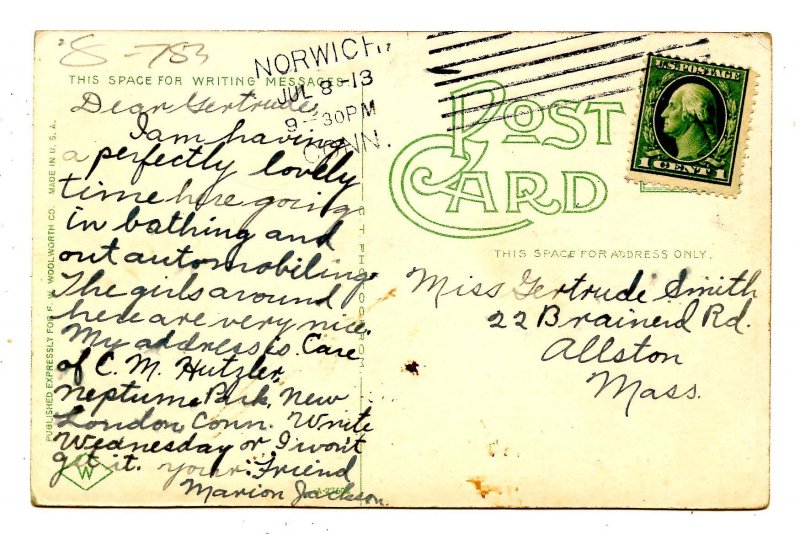 '8 - 753
THIS SPACE FOR WRITING MESSAGES
NORWICH,
JUL 8-13
9-30PM
CONN.
POST
CARD
U.S. POSTAGE
1 CENT 1
THIS SPACE FOR ADDRESS ONLY.
Dear Gertrude,
I am having
a perfectly lovely
time here going
in bathing and
out automobiling.
The girls around
here are very nice.
My address is. Care
of C. M. Hutzler,
Neptune Park, New
London, Conn. Write
Wednesday or I won't
get it. your Friend
Marion Jackson.
Miss Gertrude Smith
22 Brainerd Rd.
Allston
Mass.
PUBLISHED EXPRESSLY FOR F. W. WOOLWORTH CO. MADE IN U. S. A.
W